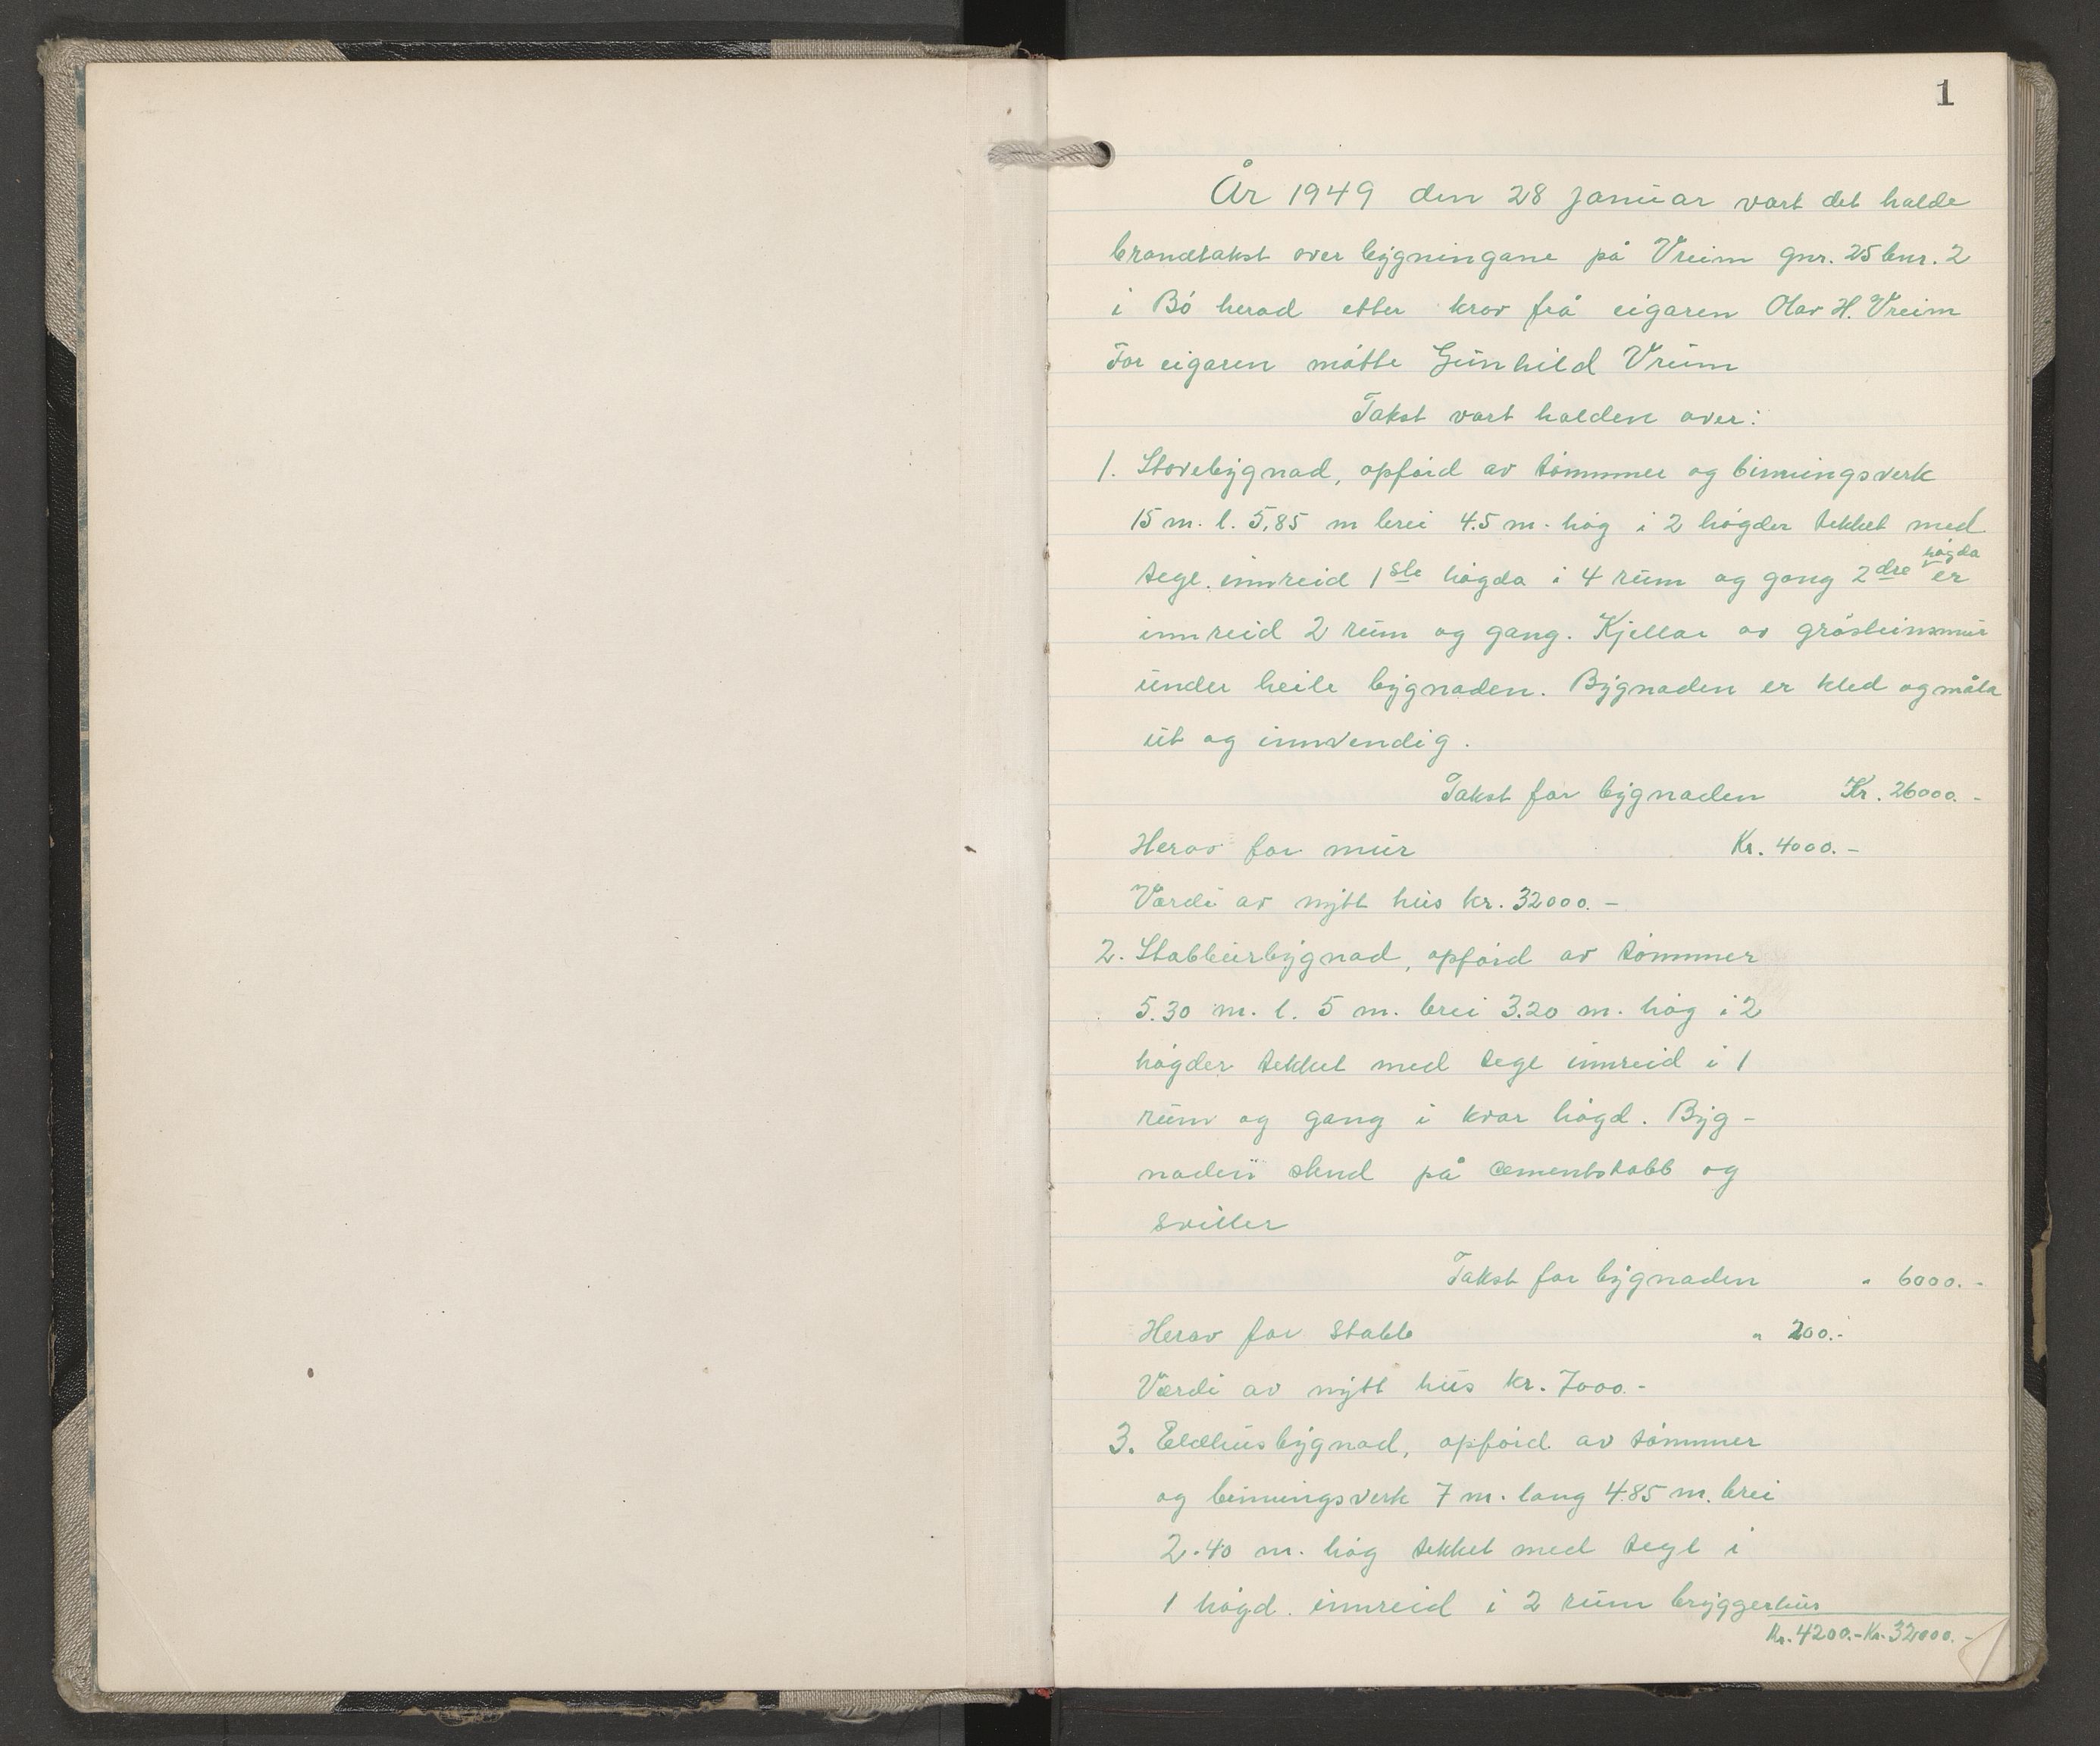 1
År 1949 den 28 januar vart det halde
brandtakst over bygningane på Vreim gnr. 25 bnr. 2
i Bó herad etter krav frå eigaren Olav H. Vreim
For eigaren mótte Gunhild Vreim
Takst vart halden over:
1. Stovebygnad, opfórd av tómmer og binningsverk
15 m. l. 5,85 m brei 4.5 m. hóg i 2 hógder tekket med
tegl. innreid 1ste hógda i 4 rum og gang 2dre hógda er
innreid 2 rum og gang. Kjellar av gråsteinsmur
under heile bygnaden. Bygnaden er kled og måla
ut og innvendig.
Takst for bygnaden Kr. 26000.-
Herav for mur Kr. 4000.-
Værdi av nytt hus kr. 32000.-
2. Stabbursbygnad, opfórd av tómmer
5.30 m. l. 5 m. brei 3.20 m. hóg i 2
hógder tekket med tegl innreid i 1
rum og gang i kvar hógd. Byg-
naden stend på cementstabb og
sviller
Takst for bygnaden " 6000.-
Herav for stabb " 200.-
Værdi av nytt hus kr. 7000.-
3. Eldhusbygnad, opfórd av tómmer
og binningsverk 7 m. lang 4.85 m. brei
2.40 m. hóg tekket med tegl i
1 hógd. innreid i 2 rum bryggerhus
Kr. 4200.- Kr. 32000.-